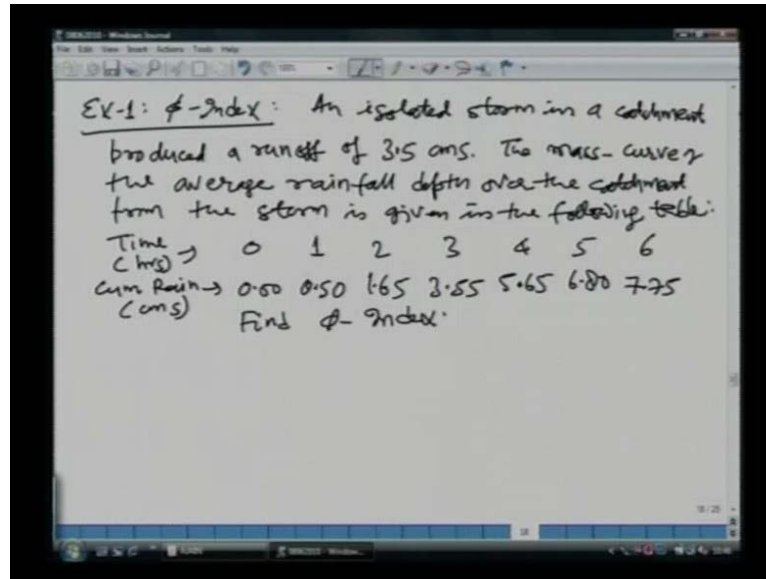 File Edit View Insert Actions Tools Help
EX-1: φ-Index: An isolated storm in a catchment
produced a runoff of 3.5 cms. The mass-curve of
the average rainfall depth over the catchment
from the storm is given in the following table:
Time (hrs) → 0 1 2 3 4 5 6
Cum Rain → (cms) 0.00 0.50 1.65 3.55 5.65 6.80 7.75
Find φ-Index.
18/25
18